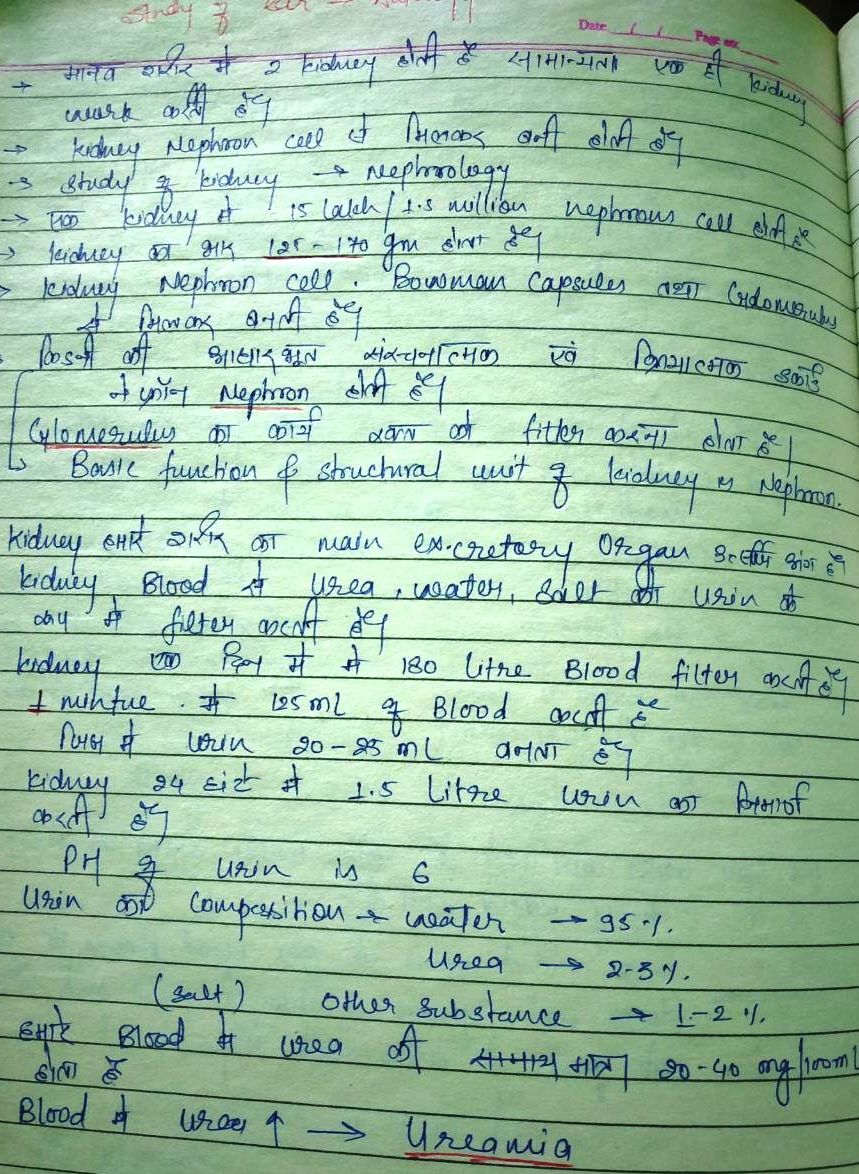 Study of
Date / / Page no.
→ मानव शरीर में 2 kidney होती हैं सामान्यता एक ही kidney
work करती है।
→ kidney Nephron cell से मिलकर बनी होती है।
→ Study of kidney → Nephrology
→ एक kidney में 15 lakh / 1.5 million nephrons cell होती हैं
→ kidney का भार 125 - 170 gm होता है।
→ kidney Nephron cell. Bowsman Capsules तथा Glomerulus
से मिलकर बनती है।
किडनी की आधारभूत संरचनात्मक एवं क्रियात्मक इकाई
नेफ्रॉन Nephron होती है।
Gylomerulus का कार्य रक्त को filter करना होता है।
Basic function & structural unit of kidney is Nephron.
Kidney हमारे शरीर का main ex.cretory Organ उत्सर्जी अंग है
kidney Blood से Urea, water, salt को Urin के
रूप में filter करती है।
kidney एक दिन में में 180 litre Blood filter करती है।
1 मे 125 ml of Blood करती है
जिस में Urin 20-25 ml बनता है।
kidney 24 घंटे में 1.5 Litre Urin का निर्माण
करती है।
PH of Urin is 6
Urin का composition → water → 95%.
Urea → 2-3%.
(salt) other substance → 1-2%.
हमारे Blood में urea की मात्रा 20-40 mg/100ml
होता है
Blood में Urea ↑ → Ureamia